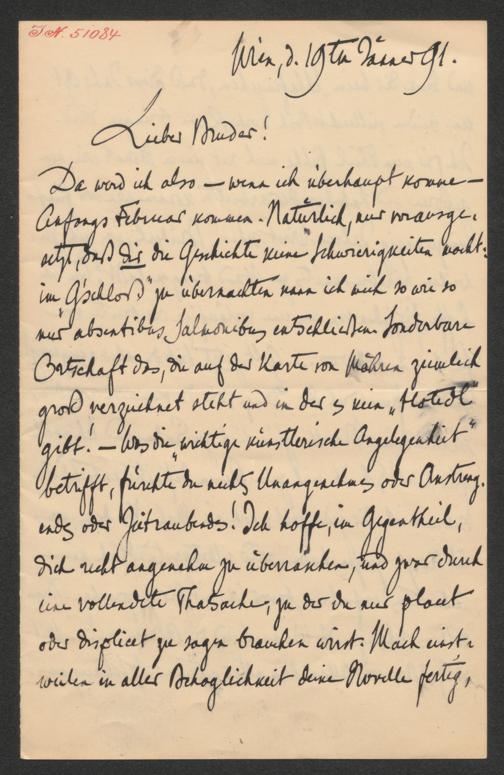 J.N. 51084
Wien, d. 19ten Jänner 91.
Lieber Bruder!
Da werd ich also – wenn ich überhaupt komme –
Anfangs Februar kommen. Natürlich, nur vorausge-
setzt, daß dir die Geschichte keine Schwierigkeiten macht:
im "G'schloß" zu übernachten kann ich mich so wie so
nur absentibus Salmonibus entschließen. Sonderbare
Ortschaft das, die auf der Karte von Mähren ziemlich
groß verzeichnet steht und in der es kein „Hotedl"
gibt! – Was die „wichtige künstlerische Angelegenheit"
betrifft, fürchte du nichts Unangenehmes oder Anstreng-
endes oder Zeitraubendes! Ich hoffe, im Gegentheil,
dich recht angenehm zu überraschen, und zwar durch
eine vollendete Thatsache, zu der du nur placet
oder displicet zu sagen brauchen wirst. Mach einst-
weilen in aller Behaglichkeit deine Novelle fertig,